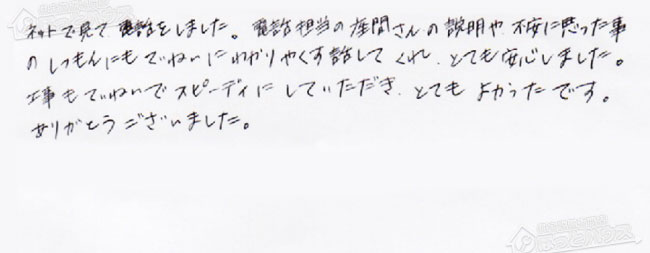 ネットで見て電話をしました。電話担当の座間さんの説明や不安に思った事
のしつもんにもていねいにわかりやくす話してくれ、とても安心しました。
工事もていねいでスピーディにしていただき、とてもよかったです。
ありがとうございました。